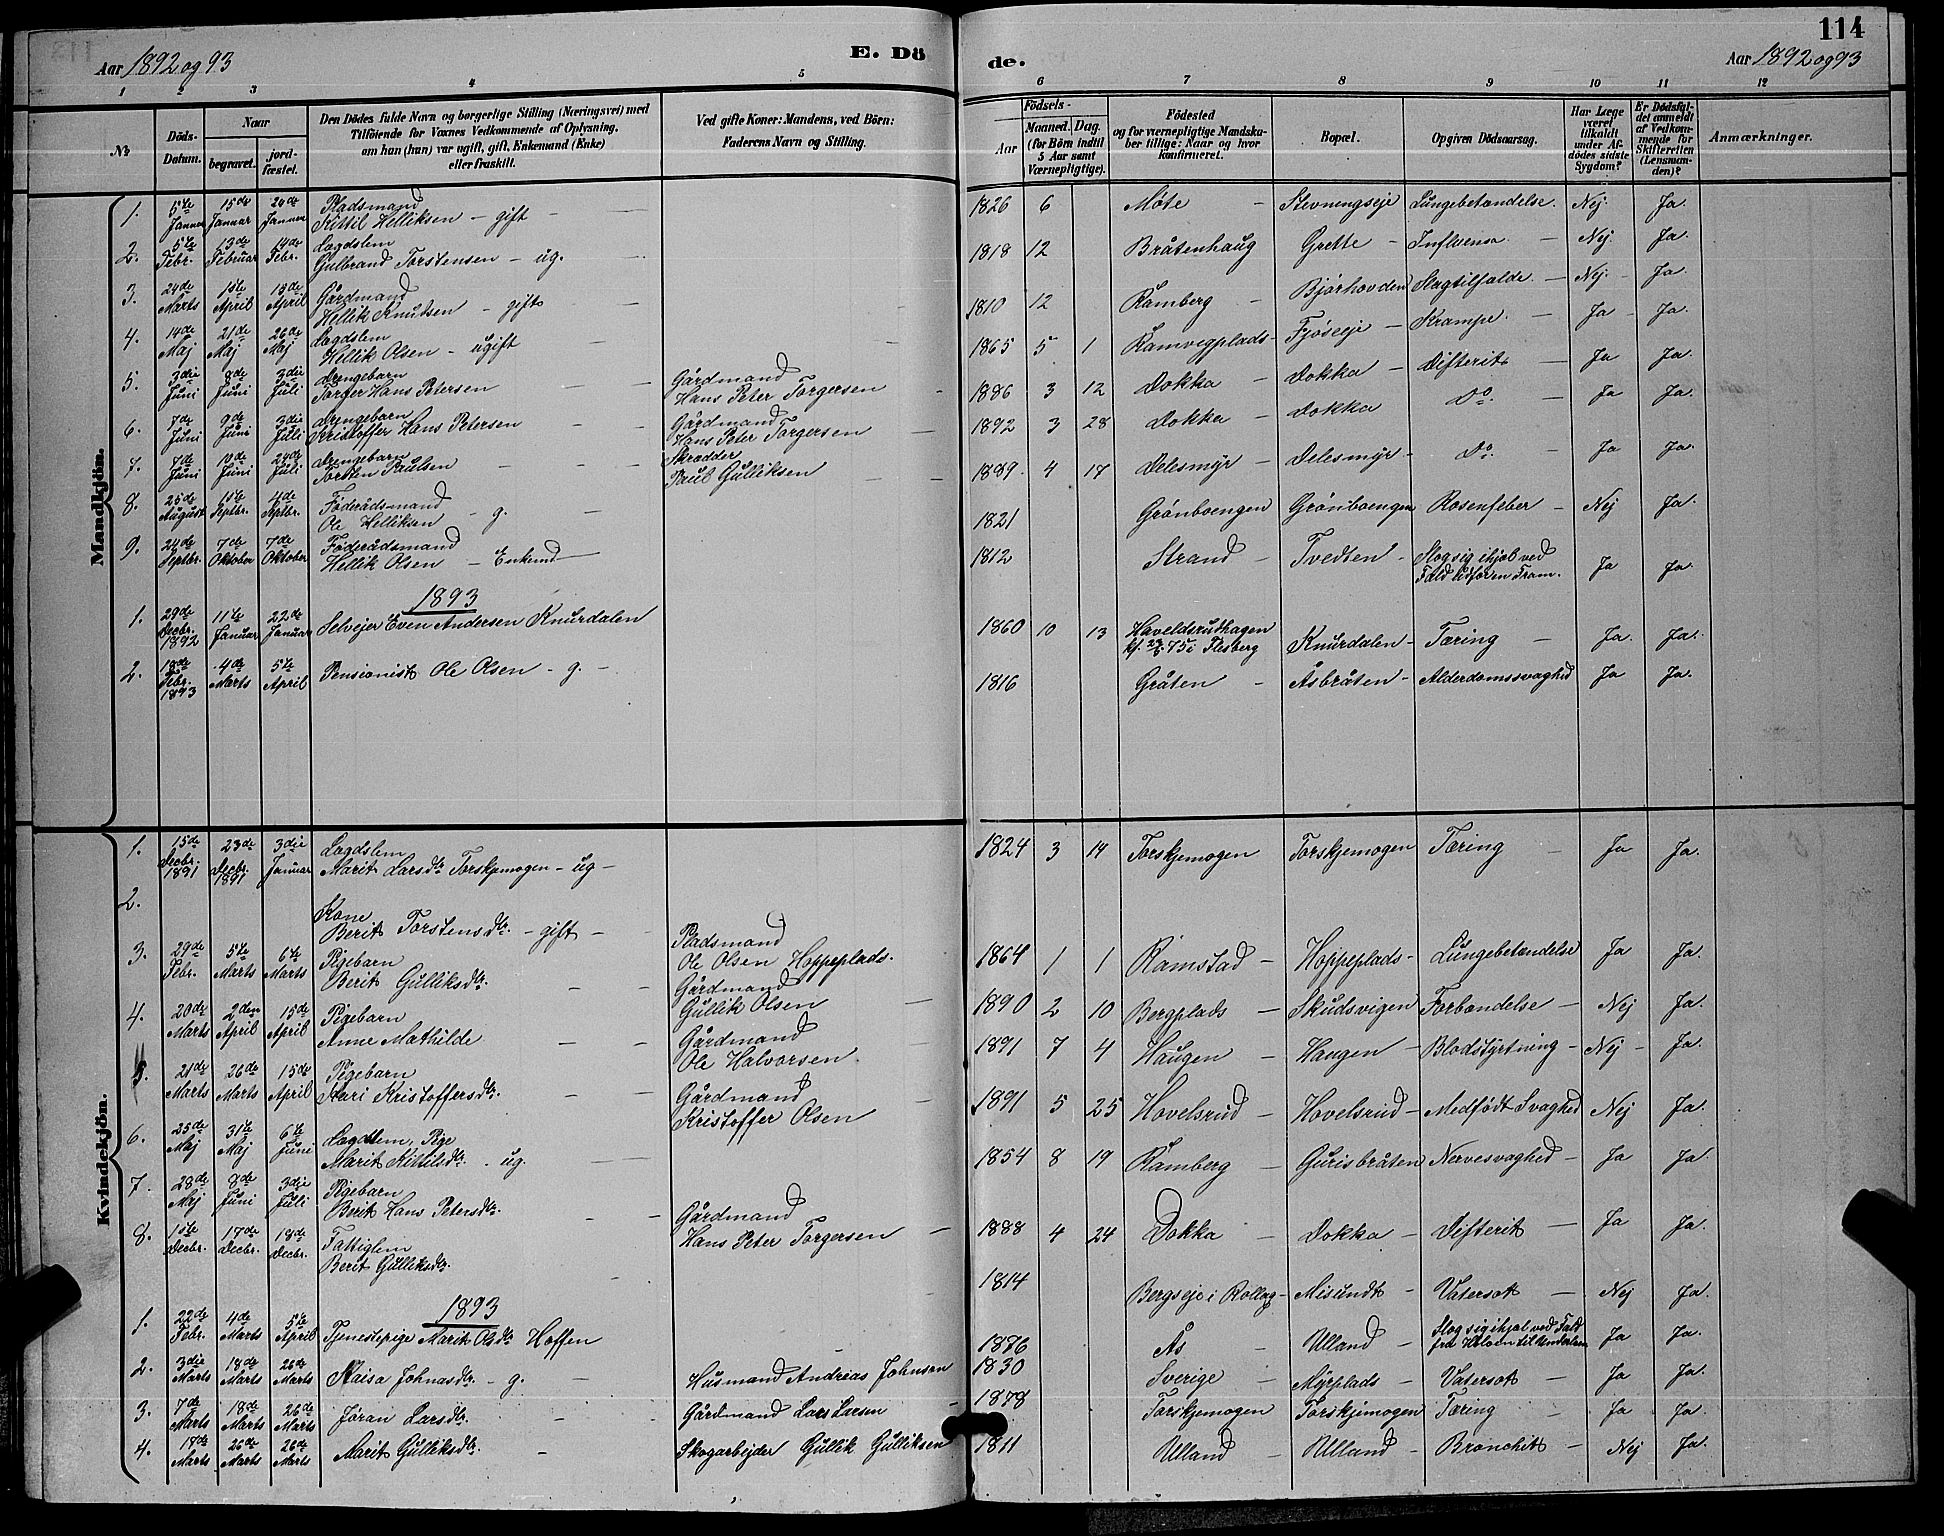 114
Aar 1892 og 93
E. Dö
de.
Aar 1892 og 93
1 2 3 4 5 6 7 8 9 10 11 12
No
Döds-Datum.
Naar
begravet.
jordfæstet.
Den Dödes fulde Navn og borgerlige Stilling (Næringsvei) med
Tilföiende for Voxnes Vedkommende af Oplysning,
om han (hun) var ugift, gift, Enkemand (Enke)
eller fraskilt.
Ved gifte Koner: Mandens, ved Börn:
Faderens Navn og Stilling.
Födsels-
Aar
Maaned. Dag.
(for Börn indtil
5 Aar samt
Værnepligtige).
Födested
og for værnepligtige Mandska-
ber tillige: Naar og hvor
konfirmeret.
Bopæl.
Opgiven Dödsaarsag.
Har Læge
været
tilkaldt
under Af-
dödes sidste
Sygdom?
Er Dödsfal-
det anmeldt
af Vedkom-
mende for
Skifteretten
(Lensman-
den)?
Anmærkninger.
Mandkjön.
1. 5te Januar 15de Januar 24de Januar Pladsmand Kittil Helliksen - gift - 1826 6 Møte - Stevningseje Lungebetændelse. Nej. Ja.
2. 5te Febr. 13de Februar 14de Febr. Lægdslem Gulbrand Torstensen - ug. - 1818 12 Bråtenhaug Grette - Influensa - Nej. Ja.
3. 24de Marts 1ste April 18de April Gårdmand Hellik Knutsen - gift - 1810 12 Ramberg - Bjørhovden Slagtilfælde. - Nej. - Ja.
4. 14de Maj 21de Maj 26de Maj Lægdslem Hellik Olsen - ugift - 1865 5 1 Ramvigplads - Fjøseje - Krampe. - Ja - Ja.
5. 3die Juni 8de Juni 3die Juli Drengebarn Torger Hans Petersen - Gårdmand Hans Peter Torgersen - 1886 3 12 Dokka - Dokka - Difterit - Ja Ja.
6. 7de Juni 9de Juni 3die Juli Drengebarn Kristoffer Hans Petersen - Gårdmand Hans Peter Torgersen - 1892 3 28 Dokka - Dokka Do. - Ja Ja.
7. 7de Juni 10de Juni 24de Juli Drengebarn Torsten Paulsen - Skrædder Paul Gulliksen - 1889. 4 17 Delesmyr - Delesmyr - Do. - Ja Ja.
8. 25de August 1ste Septbr. 4de Septbr. Føderådsmand Ole Helliksen - g. - 1821 Grønboengen Grønboengen Rosenfeber - Nej Ja.
9. 24de Septbr. 7de Oktober 7de Oktober Føderådsmand Hellik Olsen - Enkemd - 1812 Strand - Tvedten - Slog sig ihjel ved Fald udfor en Tram. Ja Ja.
1893
1. 29de Decbr. 1892 11te Januar 22de Januar Selvejer Even Andersen Knurdalen 1860 10 13 Haveldsrudhagen Flesberg Knurdalen - Tæring - Ja. Ja.
2. 18de Febr. 1893 4de Marts 5te April Pensionist Ole Olsen - g. - 1816 Gråten - Åsbråten - Alderdomssvaghed Ja Ja.
Kvindekjön.
1. 15de Decbr. 1891 23de Decbr. 1891 3die Januar Lægdslem Marit Larsdr. Torskjemogen - ug - 1824 3 14 Torskjemogen Torskjemogen Tæring - Ja Ja.
2. Kone Berit Torstensdtr. - gift - Pladsmand Ole Olsen Hoppeplads. 1864 1 1 Ramstad - Hoppeplads - Lungebetændelse Ja Ja.
3. 29de Febr. 5te Marts 6te Marts Pigebarn Berit Gulliksdtr. - Gårdmand Gullik Olsen - 1890 2 10 Bergplads - Skudsvigen Forbændelse - Nej Ja.
4. 20de Marts 2den April 15de April Pigebarn Anne Mathilde - Gårdmand Ole Halvorsen. 1891 7 4 Haugen - Haugen - Blodstyrtning - Nej - Ja.
5. 21de Marts 26de Marts 15de April Pigebarn Kari Kristoffersdtr. - Gårdmand Kristoffer Olsen 1891 5 25 Hovelsrud - Hovelsrud - Medfødt Svaghed Nej Ja.
6. 25de Maj 31te Maj 6te Juni Lægdslem, Pige Marit Kittilsdtr. - ug. - 1854 8 19 Ramberg - Gurisbråten Nervesvaghed - Ja Ja.
7. 28de Maj 8de Juni 3die Juli Pigebarn Berit Hans Petersdtr. - Gårdmand Hans Peter Torgersen - 1888 4 24 Dokka - Dokka - Difterit - Ja Ja.
8. 1ste Decbr. 17de Decbr. 18de Decbr. Fattiglem Berit Gulliksdtr. - 1814 Bergseje i Rollag - Misundt - Vatersot - Nej Ja.
1893
1. 22de Febr. 4de Marts 5te April Tjenestepige Marit Olsdtr. Hoffen 1876 Ås - Ulland - Slog sig ihjel ved Fald fra Ja Ja.
2. 3die Marts 18de Marts 26de Marts Kaisa Johnasdtr. - g. - Husmand Andreas Johnsen 1830 Sverige - Myrplads - Vatersot - Ja Ja.
3. 7de Marts 18de Marts 26de Marts Jøran Larsdtr. - Gårdmand Lars Larsen - 1878 Torskjemogen Torskjemogen Tæring - Ja Ja.
4. 17de Marts 26de Marts 26de Marts Marit Gulliksdtr. - Skogarbejder Gullik Gulliksen 1811 Ulland - Ulland - Bronchit - Nej Ja.